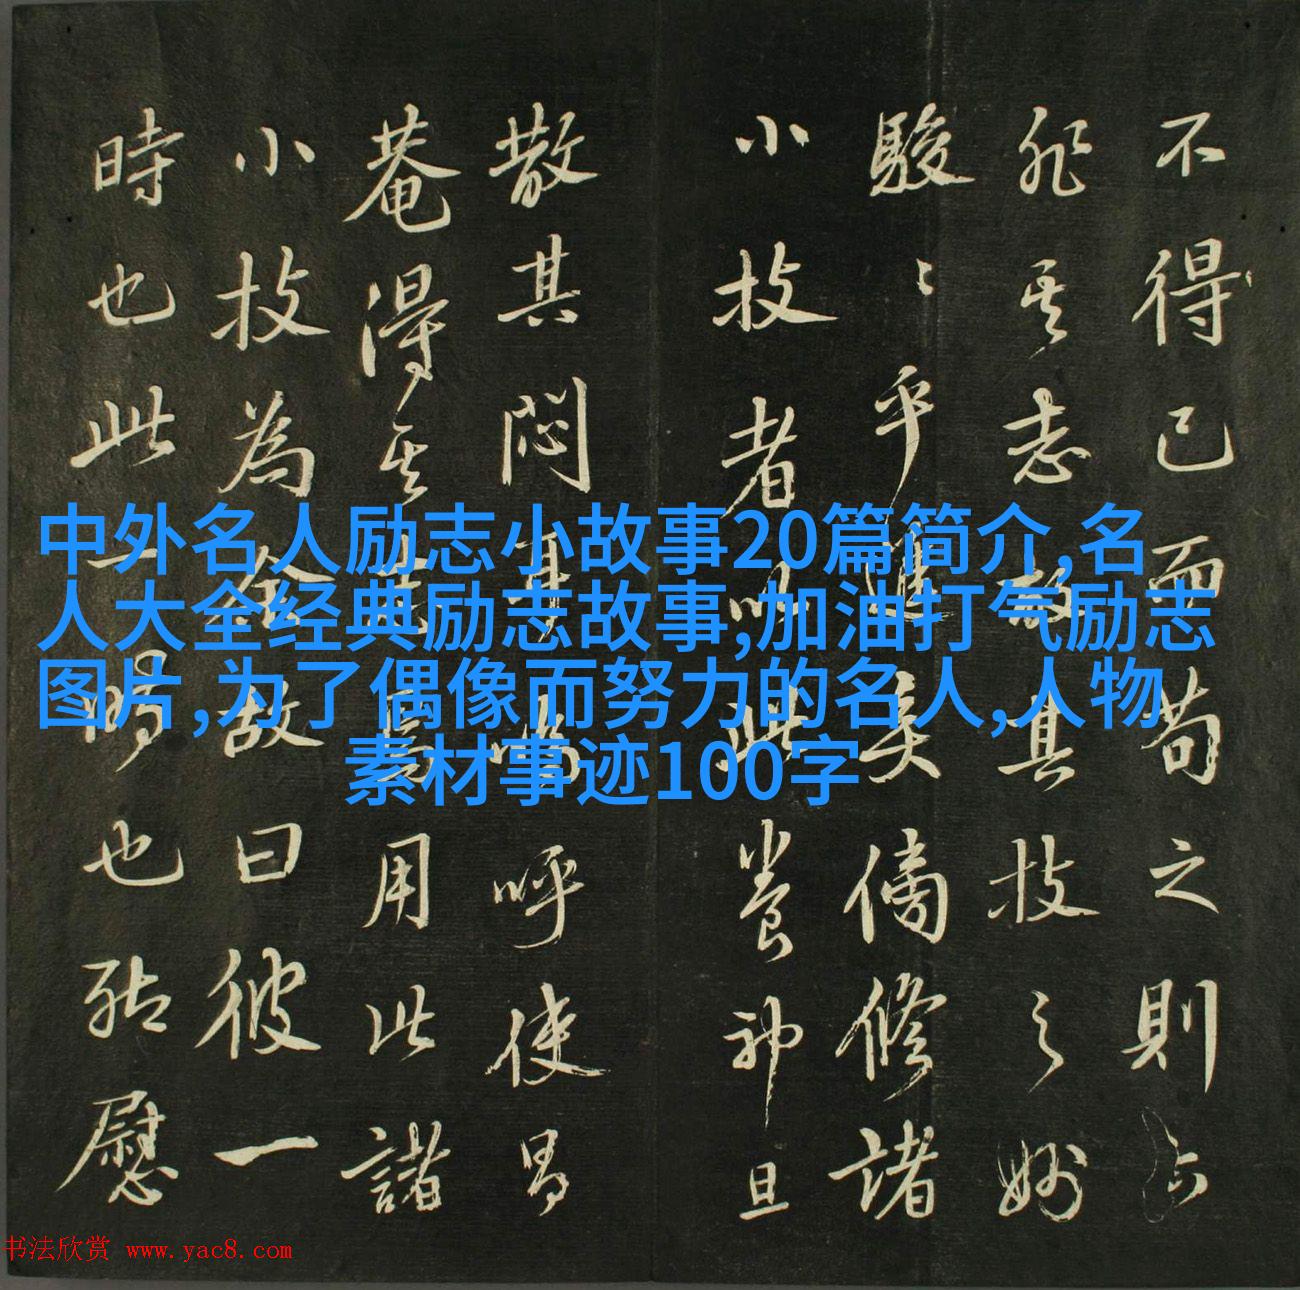 不得已而苟之則
非其志故具技之妙
駿〻乎進矣倘修諸
小技者以此養神且
散其悶耳嗚呼使昌
菴得其志焉用此諸
小技為余故曰彼一
時也此一時也聊慰
中外名人励志小故事20篇简介,名
人大全经典励志故事,加油打气励志
图片,为了偶像而努力的名人,人物
素材事迹100字
书法欣赏 www.yac8.com